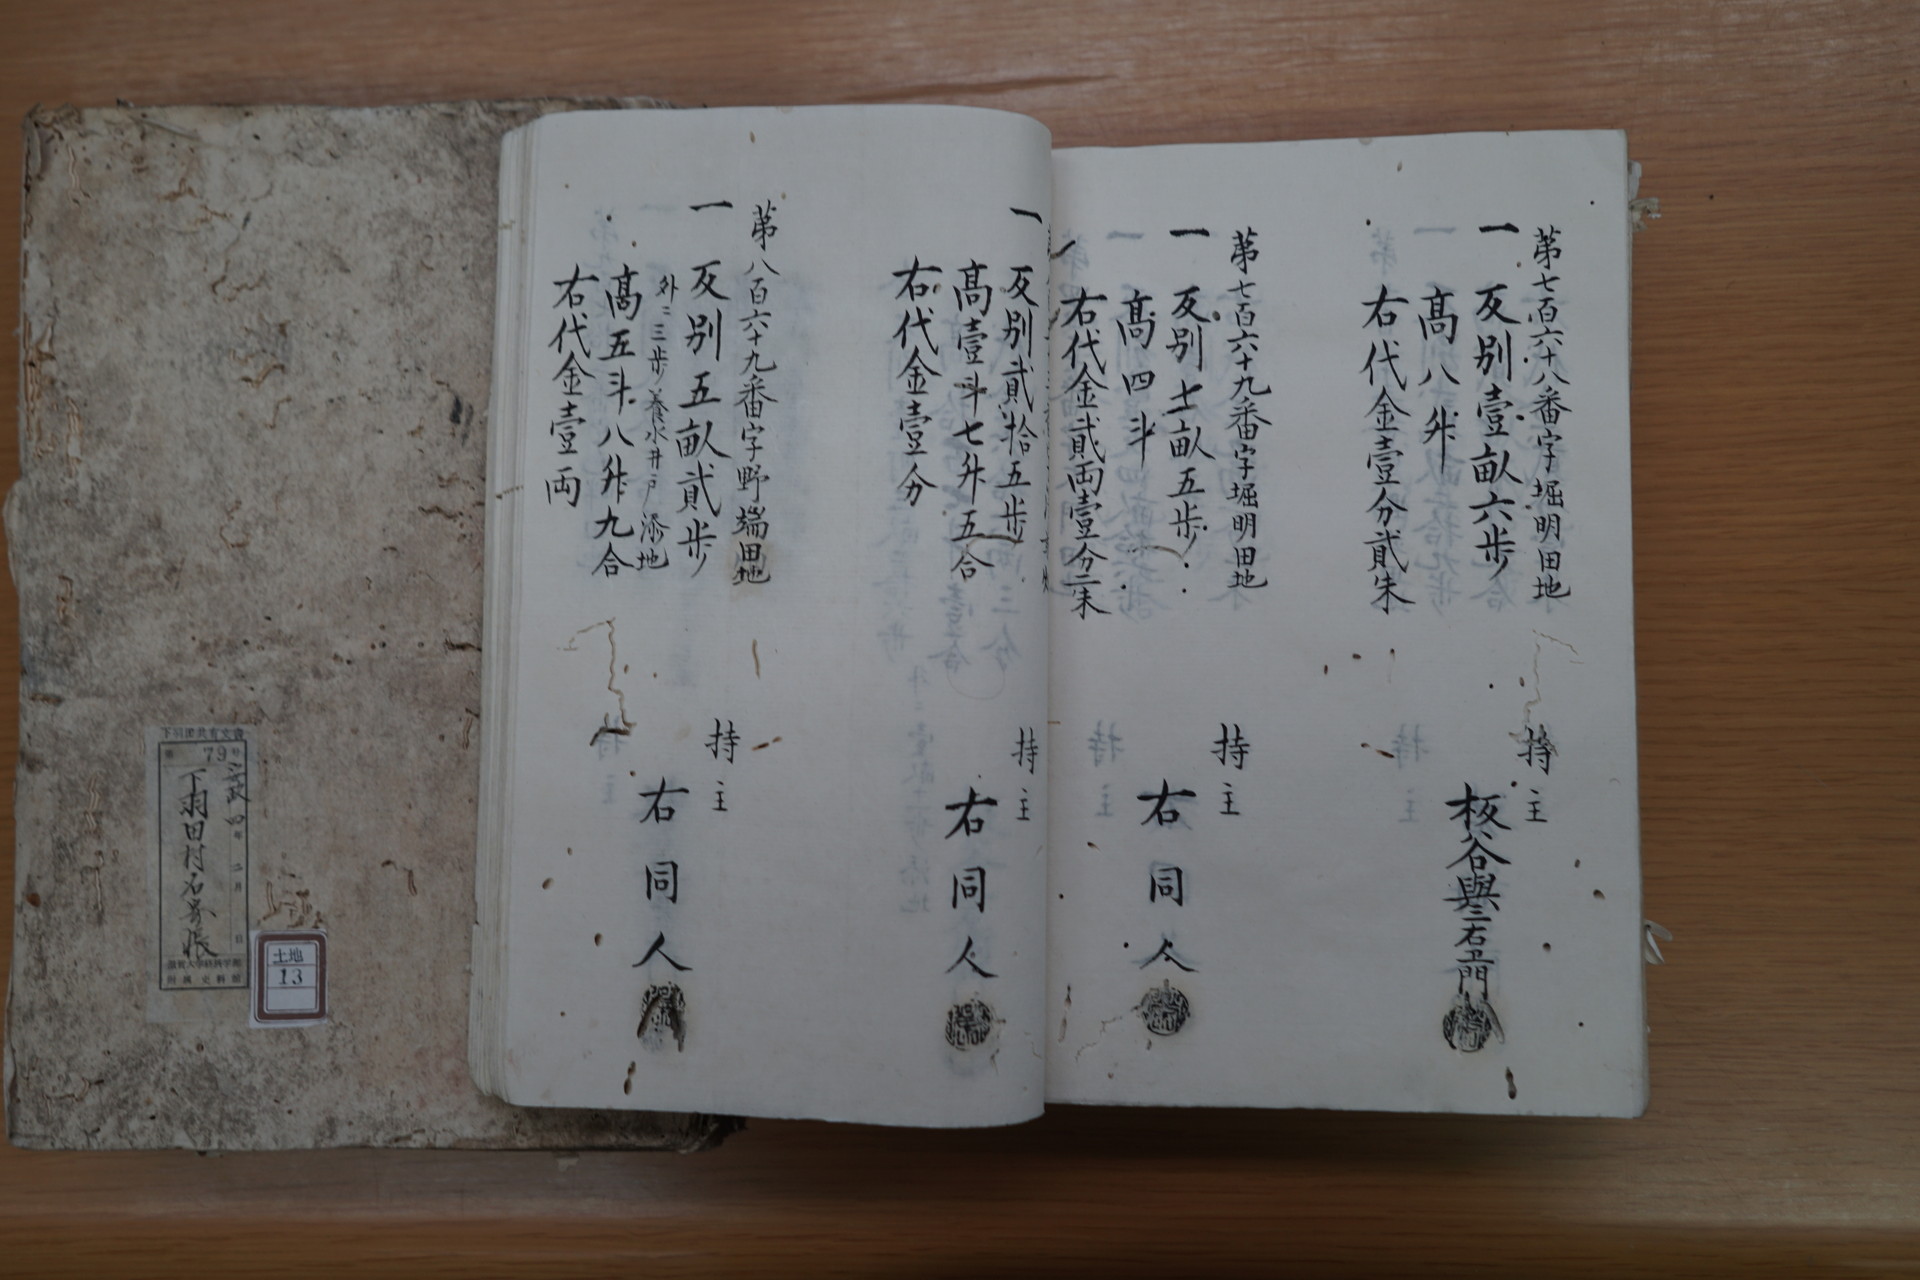 第七百六十八番字堀明田地
一 反別壹畝六歩
高八升
右代金壹分貳朱
持主
板谷與三右卫門
第七百六十九番字堀明田地
一 反別七畝五歩
高四斗
右代金貳両壹分二朱
持主
右同人
一 反別貳拾五歩
高壹斗七升五合
右代金壹分
持主
右同人
第八百六十九番字野端田地
一 反別五畝貳歩
外ニ三歩養水井戸添地
高五斗八升九合
右代金壹両
持主
右同人
79
政四年二月 日
下羽田村
帳
土地
13